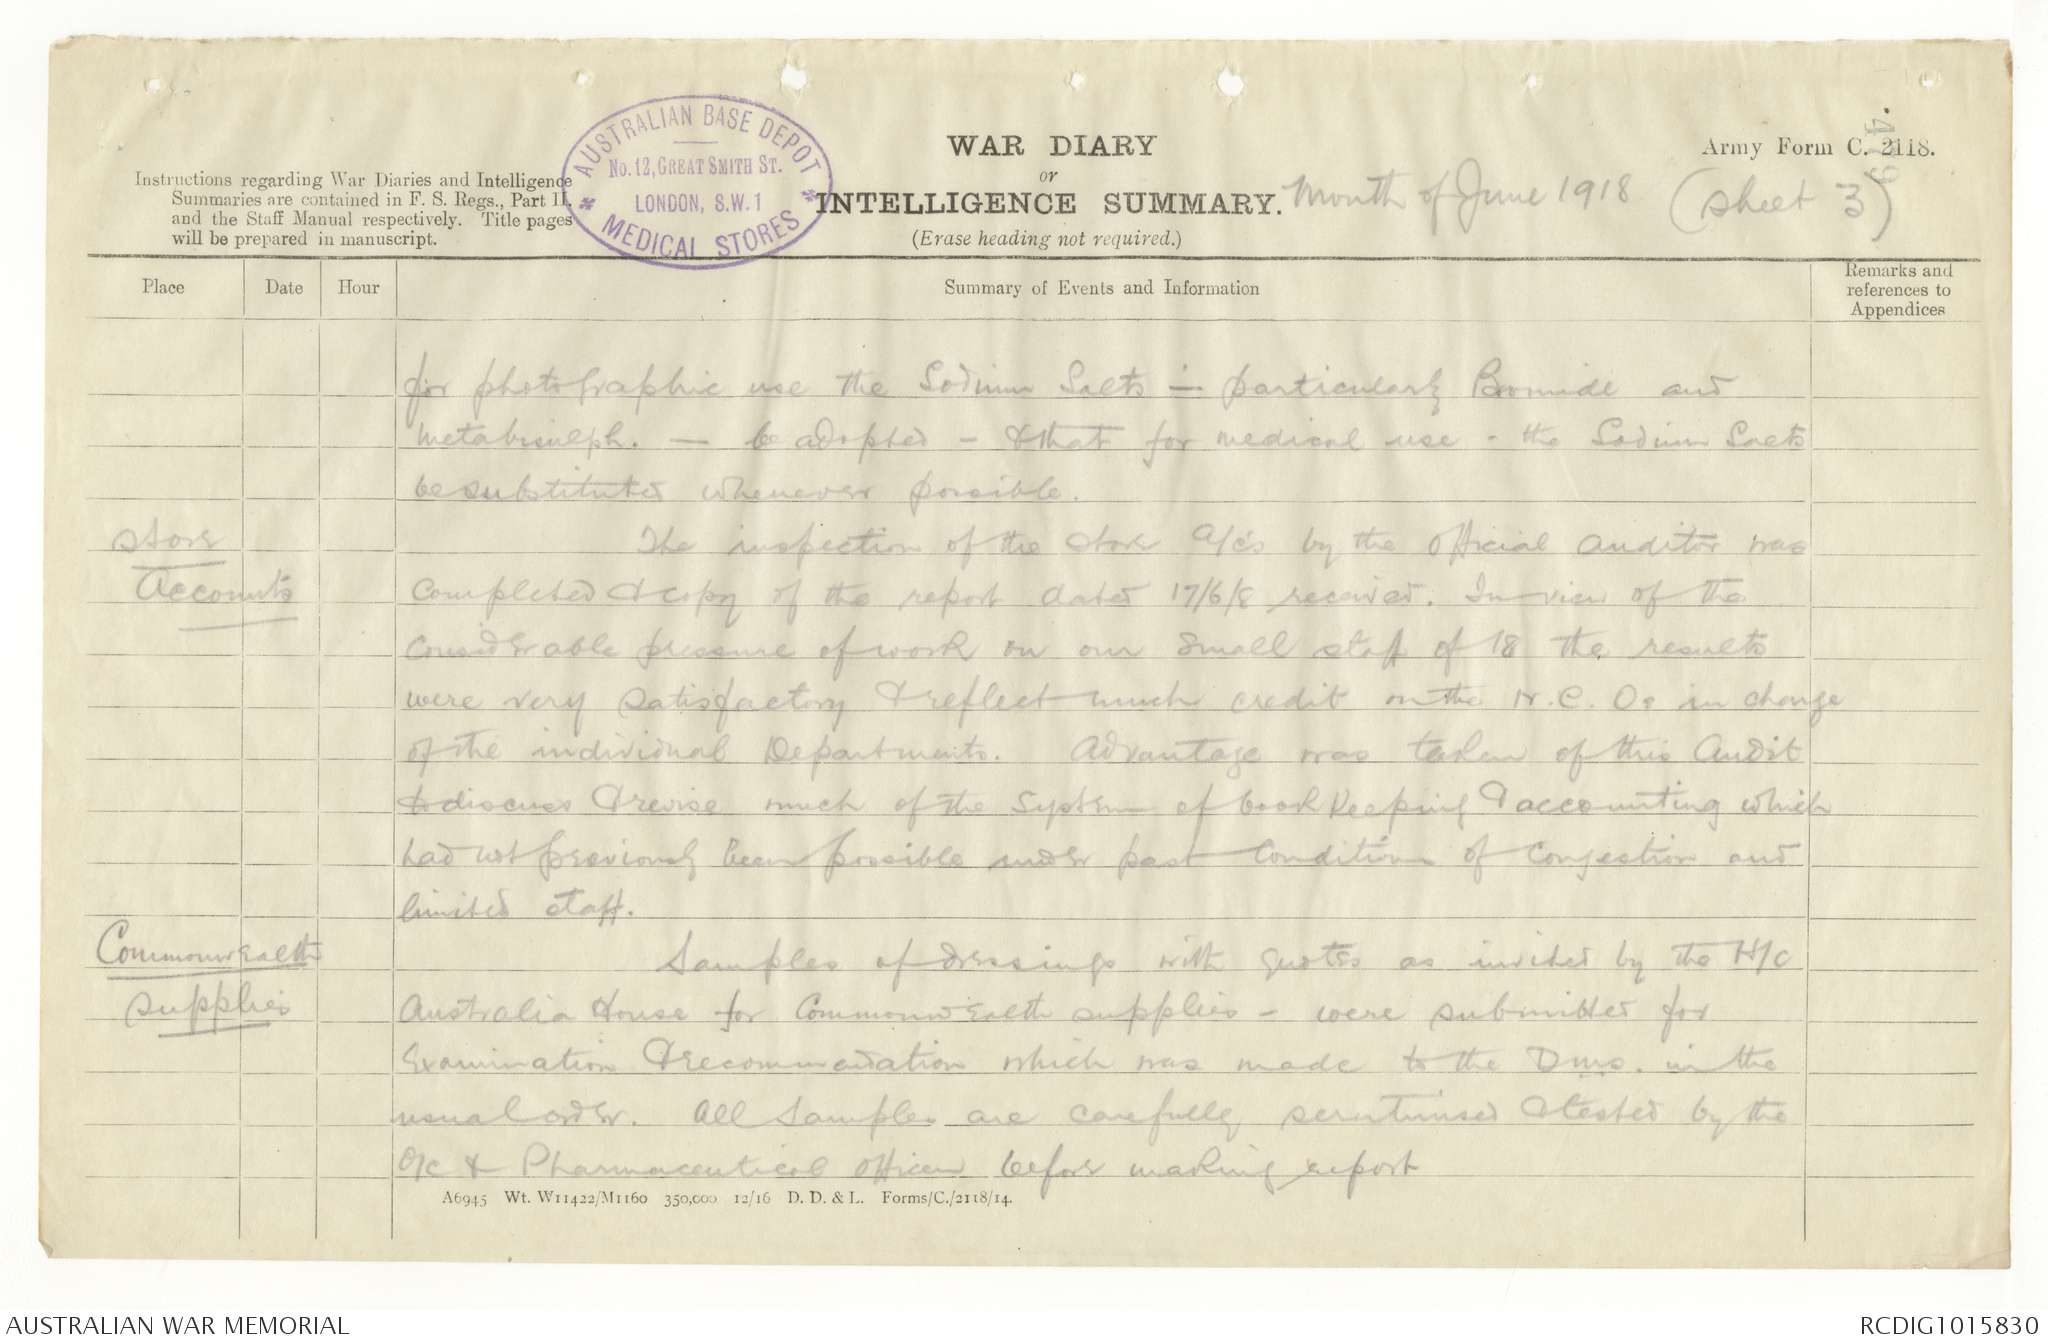 AUSTRALIAN BASE DEPOT
No. 12, GREAT SMITH ST.
LONDON, S.W.1
MEDICAL STORES
WAR DIARY
or
INTELLIGENCE SUMMARY.
(Erase heading not required.)
Month of June 1918 (Sheet 3)
Army Form C. 2118.
419
Instructions regarding War Diaries and Intelligence
Summaries are contained in F. S. Regs., Part II.
and the Staff Manual respectively. Title pages
will be prepared in manuscript.
Place
Date
Hour
Summary of Events and Information
Remarks and
references to
Appendices
for photographic use the Sodium Salts - particularly Bromide and
Metabisulph. - be adopted - & that for medical use - the Sodium Salts
be substituted whenever possible.
Store
Accounts
The inspection of the store a/cs by the official auditor was
completed & copy of the report dated 17/6/8 received. In view of the
considerable pressure of work on our small staff of 18 the results
were very satisfactory & reflect much credit on the N.C.Os in charge
of the individual Departments. Advantage was taken of this Audit
to discuss & revise much of the system of book keeping & accounting which
had not previously been possible under past conditions of congestion and
limited staff.
Commonwealth
supplies
Samples of dressings with quotes as invited by the H/c
Australia House for Commonwealth supplies - were submitted for
examination & recommendation which was made to the DMS. in the
usual order. All samples are carefully scrutinised & tested by the
O/c & Pharmaceutical Officer before making report
A6945 Wt. W11422/M1160 350,000 12/16 D. D. & L. Forms/C./2118/14.
AUSTRALIAN WAR MEMORIAL
RCDIG1015830